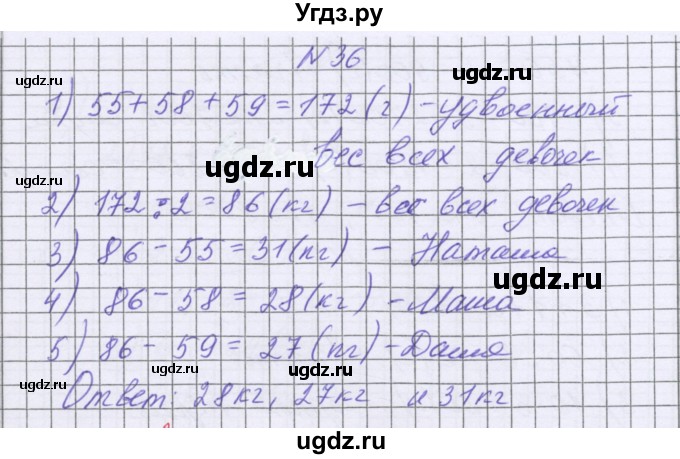 Угдз.ру
ugdz.ru ugdz.ru
N 36
ugdz.ru
1) 55 + 58 + 59 = 172 (г) - удвоенный
ugdz.ru
вес всех девочек
ugdz.ru
2) 172 : 2 = 86 (кг) - вес всех девочек
3) 86 - 55 = 31 (кг) - Наташа
ugdz.ru ugdz.ru
4) 86 - 58 = 28 (кг) - Маша
5) 86 - 59 = 27 (кг) - Даша
ugdz.ru ugdz.ru
Ответ: 28 кг, 27 кг и 31 кг
ugdz.ru